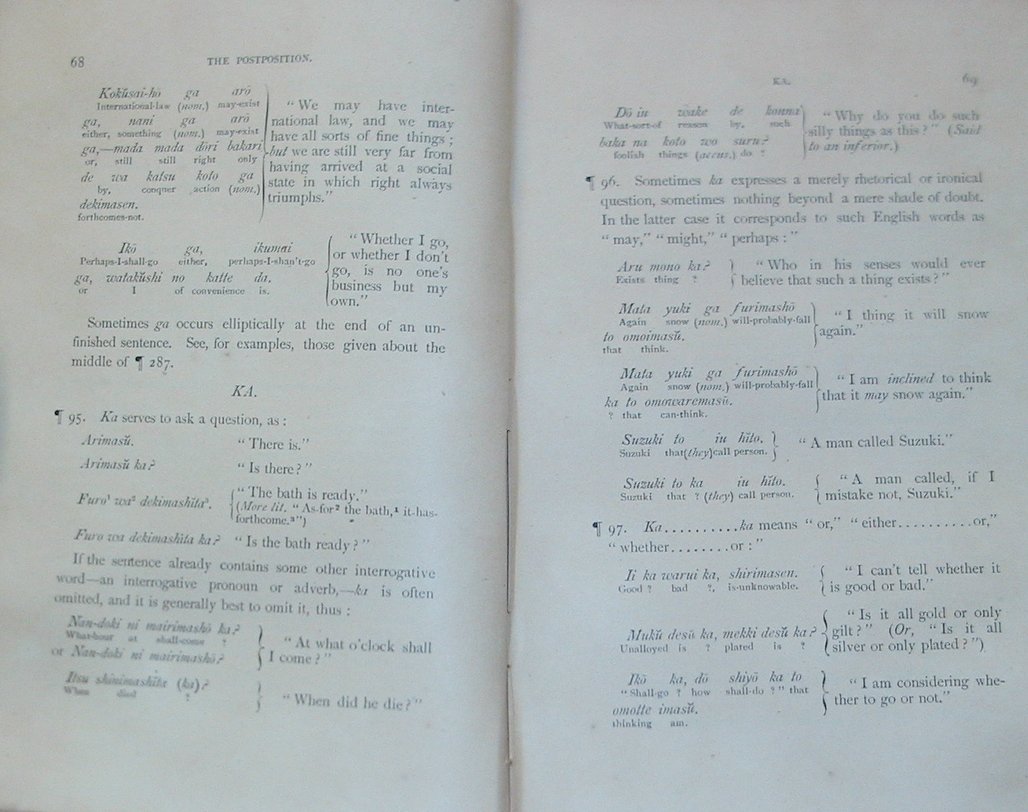 68
THE POSTPOSITION.
Kokŭsai-hō ga arō
International-law (nom.) may-exist
ga, nani ga arō
either, something (nom.) may-exist
ga,—mada mada dōri bakari
or, still still right only
de wa katsu koto ga
by, conquer action (nom.)
dekimasen.
forthcomes-not.
“We may have inter-
national law, and we may
have all sorts of fine things;
but we are still very far from
having arrived at a social
state in which right always
triumphs.”
Ikō ga, ikumai
Perhaps-I-shall-go either, perhaps-I-shan't-go
ga, watakŭshi no katte da.
or I of convenience is.
“Whether I go,
or whether I don't
go, is no one's
business but my
own.”
Sometimes ga occurs elliptically at the end of an un-
finished sentence. See, for examples, those given about the
middle of ¶ 287.
KA.
¶ 95. Ka serves to ask a question, as:
Arimasŭ. “There is.”
Arimasŭ ka? “Is there?”
Furo¹ wa² dekimashĭta³.
“The bath is ready.”
(More lit. “As-for² the bath,¹ it-has-
forthcome.³”)
Furo wa dekimashĭta ka? “Is the bath ready?”
If the sentence already contains some other interrogative
word—an interrogative pronoun or adverb,—ka is often
omitted, and it is generally best to omit it, thus:
Nan-doki ni mairimashō ka?
What-hour at shall-come ?
or Nan-doki ni mairimashō?
“At what o'clock shall
I come?”
Itsu shinimashĭta (ka)?
When died ?
“When did he die?”
KA.
69
Dō iu wake de konna
What-sort-of reason by, such
baka na koto wo suru?
foolish things (accus.) do ?
“Why do you do such
silly things as this?” (Said
to an inferior.)
¶ 96. Sometimes ka expresses a merely rhetorical or ironical
question, sometimes nothing beyond a mere shade of doubt.
In the latter case it corresponds to such English words as
“may,” “might,” “perhaps:”
Aru mono ka?
Exists thing ?
“Who in his senses would ever
believe that such a thing exists?”
Mata yuki ga furimashō
Again snow (nom.) will-probably-fall
to omoimasŭ.
that think.
“I thing it will snow
again.”
Mata yuki ga furimashō
Again snow (nom.) will-probably-fall
ka to omowaremasŭ.
? that can-think.
“I am inclined to think
that it may snow again.”
Suzuki to iu hĭto.
Suzuki that(they)call person.
“A man called Suzuki.”
Suzuki to ka iu hĭto.
Suzuki that ? (they) call person.
“A man called, if I
mistake not, Suzuki.”
¶ 97. Ka..........ka means “or,” “either..........or,”
“whether........or:”
Ii ka warui ka, shirimasen.
Good ? bad ?, is-unknowable.
“I can't tell whether it
is good or bad.”
Mukŭ desŭ ka, mekki desŭ ka?
Unalloyed is ? plated is ?
“Is it all gold or only
gilt?” (Or, “Is it all
silver or only plated?”)
Ikō ka, dō shiyō ka to
“Shall-go ? how shall-do ?” that
omotte imasŭ.
thinking am.
“I am considering whe-
ther to go or not.”